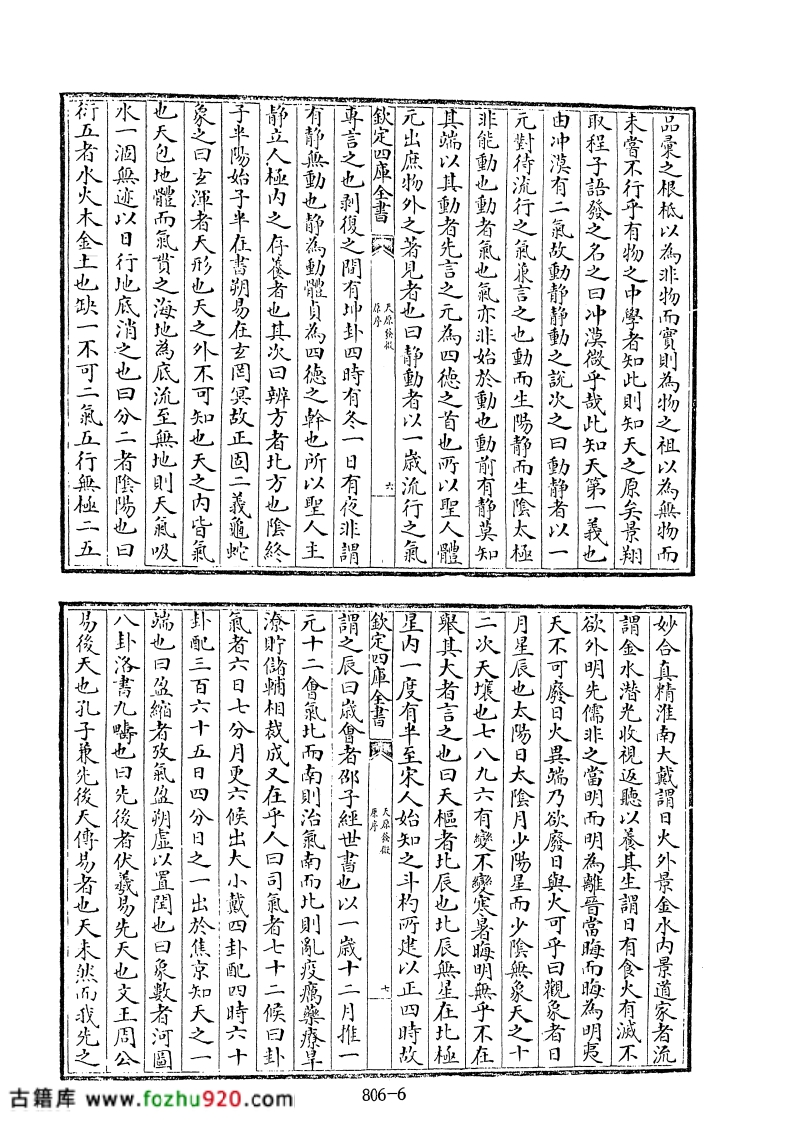 品彙之根柢以為非物而實則為物之祖以為無物而
未嘗不行乎有物之中學者知此則知天之原矣景翔
取程子語發之名之曰冲漠微乎哉此知天第一義也
由冲漠有二氣故動静静動之說次之曰動静者以一
元對待流行之氣兼言之也動而生陽静而生陰太極
非能動也動者氣也氣亦非始於動也動前有静莫知
其端以其動者先言之元為四德之首也所以聖人體
元出庶物外之著見者也曰静動者以一歲流行之氣
欽定四庫全書
天原發微
原序
六
專言之也剥復之間有坤卦四時有冬一日有夜非謂
有静無動也静為動體貞為四德之幹也所以聖人主
静立人極内之存養者也其次曰辨方者北方也陰終
子半陽始子半在書朔易在玄罔冥故正固二義龜蛇
象之曰玄渾者天形也天之外不可知也天之内皆氣
也天包地體而氣貫之海地為底流至無地則天氣吸
水一涸無迹以日行地底消之也曰分二者陰陽也曰
衍五者水火木金土也缺一不可二氣五行無極二五
妙合真精淮南大戴謂日火外景金水内景道家者流
謂金水潜光收視返聽以養其生謂日有食火有滅不
欲外明先儒非之當明而明為離晉當晦而晦為明夷
天不可廢日火異端乃欲廢日與火可乎曰觀象者日
月星辰也太陽日太陰月少陽星而少陰無象天之十
二次天壤也七八九六有變不變寒暑晦明無乎不在
舉其大者言之也曰天樞者北辰也北辰無星在北極
星内一度有半至宋人始知之斗杓所建以正四時故
欽定四庫全書
天原發微
原序
七
謂之辰曰歲會者邵子經世書也以一歲十二月推一
元十二會氣北而南則治氣南而北則亂疫癘藥療旱
潦貯儲輔相裁成又在乎人曰司氣者七十二候曰卦
氣者六日七分月更六候出大小戴四卦配四時六十
卦配三百六十五日四分日之一出於焦京知天之一
端也曰盈縮者攷氣盈朔虚以置閏也曰象數者河圖
八卦洛書九疇也曰先後者伏羲易先天也文王周公
易後天也孔子兼先後天傳易者也天未然而我先之
古籍库 www.fozhu920.com
806-6